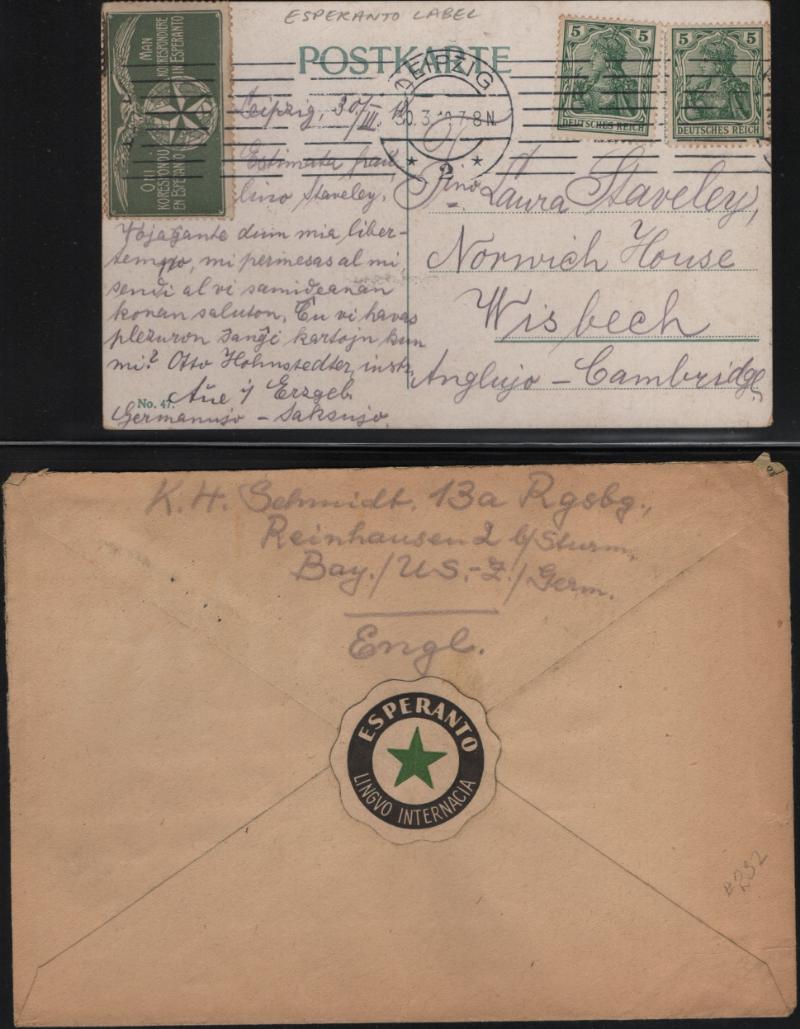 ESPERANTO LABEL
MAN
KORRESPONDIERE
IN ESPERANTO
ONI
KORESPONDU
EN ESPERANTO
POSTKARTE
LEIPZIG
30.3. 7-8 N.
* 2 *
5 5
DEUTSCHES REICH
5 5
DEUTSCHES REICH
Leipzig, 30/III.
Estimata fraŭ
lino Staveley.
Vojaĝante dum mia liber-
tempo, mi permesas al mi,
sendi al vi samideanan
konan saluton. Ĉu vi havas
plezuron ŝanĝi kartojn kun
mi? Otto Hohnstedter, instr.
Aŭe i/ Erzgeb.
Germanujo – Saksujo.
No. 47.
Laura Staveley,
Norwich House
Wisbech
Anglujo – Cambridge.
K. H. Schmidt, 13a Rgsbg.,
Reinhausen 2 b/Sturm,
Bay./US.-Z./Germ.
Engl.
ESPERANTO
LINGVO INTERNACIA
#292